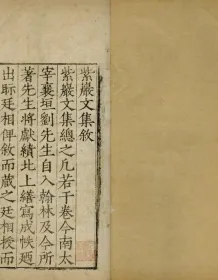 紫巖文集敘
紫巖文集總之凡若干卷今南太
宰襄垣劉先生自入翰林及今所
著先生將獻績北上繕寫成帙廼
出眎廷相俾敘而藏之廷相授而